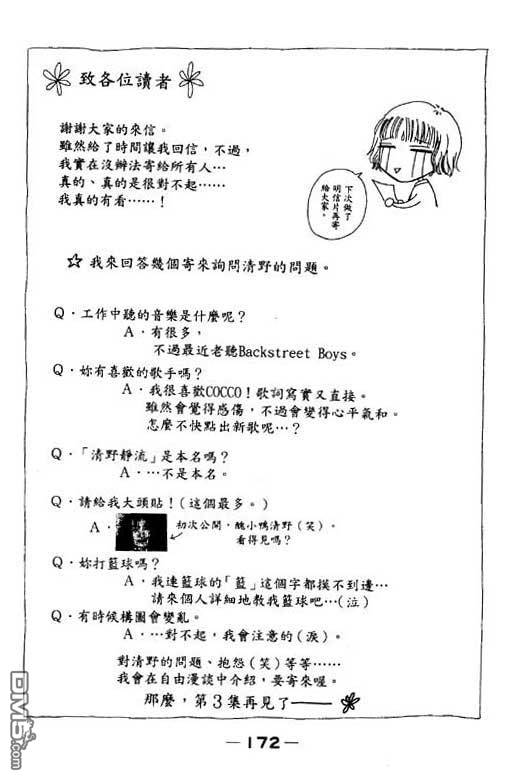 致各位讀者
謝謝大家的來信。
雖然給了時間讓我回信，不過，
我實在沒辦法寄給所有人…
真的、真的是很對不起……
我真的有看……！
下次做了
明信片再寄
給大家。
☆ 我來回答幾個寄來詢問清野的問題。
Q・工作中聽的音樂是什麼呢？
A・有很多，
不過最近老聽Backstreet Boys。
Q・妳有喜歡的歌手嗎？
A・我很喜歡COCCO！歌詞寫實又直接。
雖然會覺得感傷，不過會變得心平氣和。
怎麼不快點出新歌呢…？
Q・「清野靜流」是本名嗎？
A・…不是本名。
Q・請給我大頭貼！（這個最多。）
A・
初次公開，醜小鴨清野（笑）。
看得見嗎？
Q・妳打籃球嗎？
A・我連籃球的「籃」這個字都摸不到邊…
請來個人詳細地教我籃球吧…（泣）
Q・有時候構圖會變亂。
A・…對不起，我會注意的（淚）。
對清野的問題、抱怨（笑）等等……
我會在自由漫談中介紹，要寄來喔。
那麼，第3集再見了——
— 172 —
DM5.com